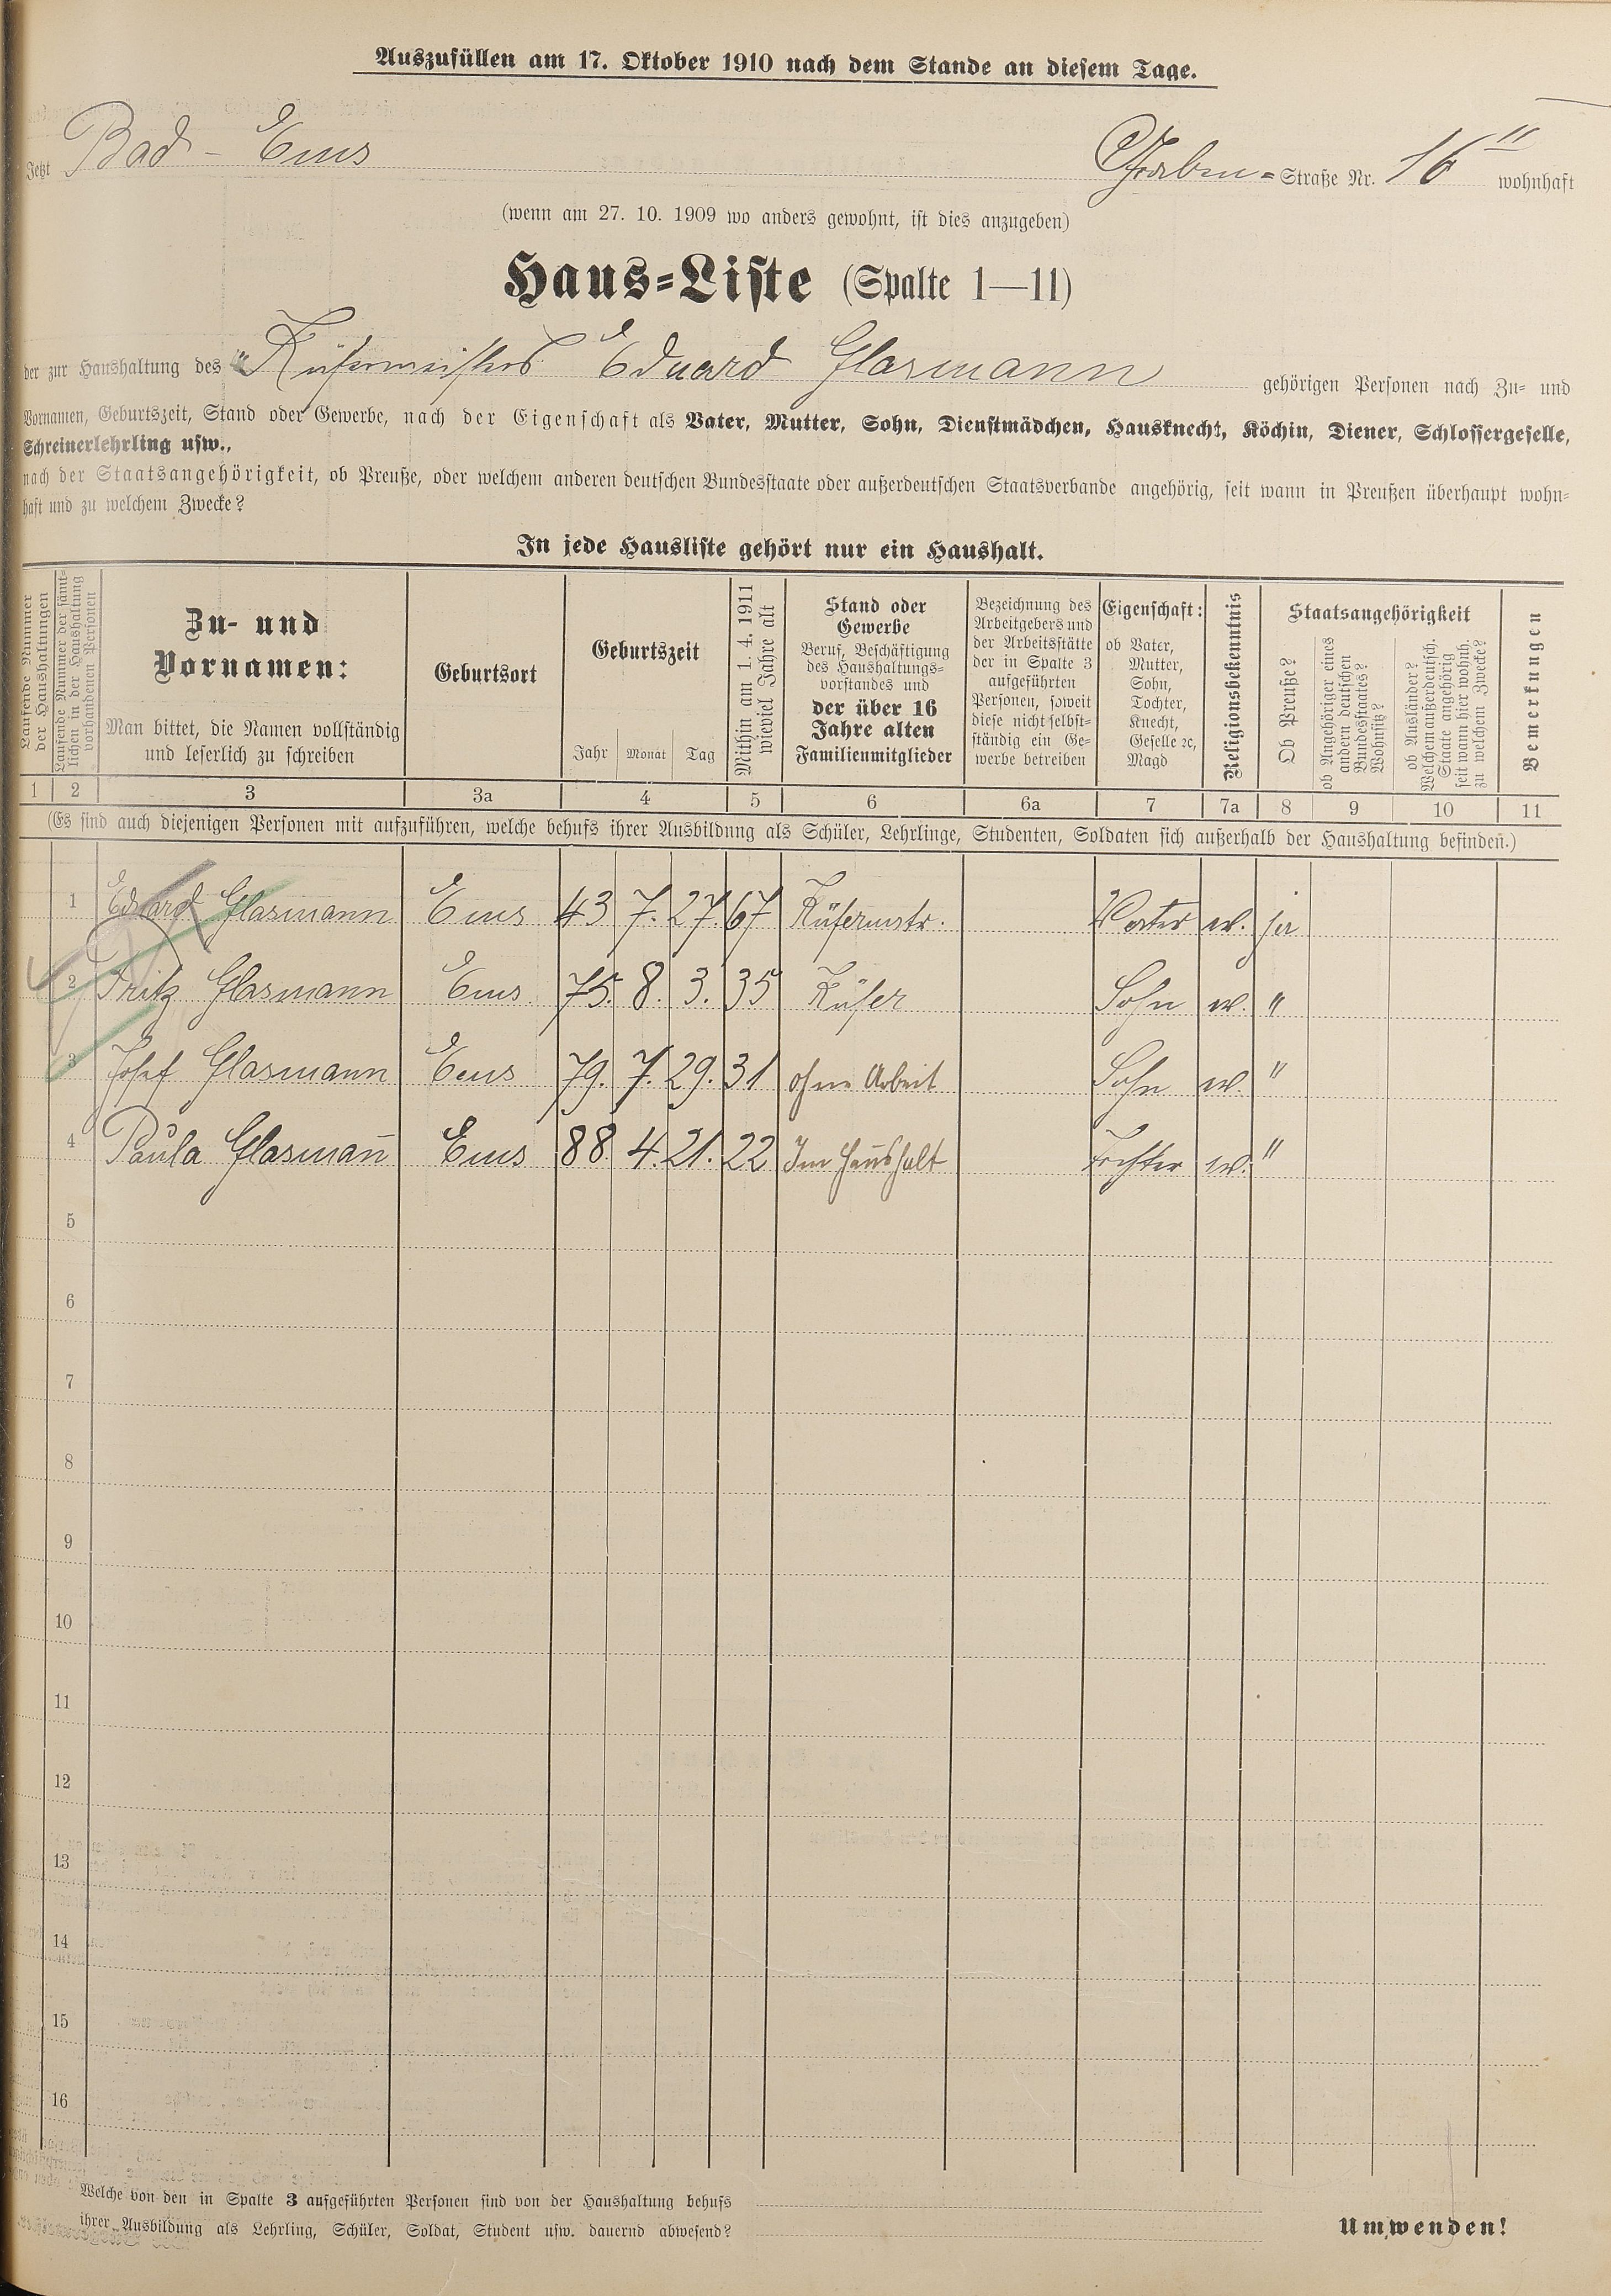 Auszufüllen am 17. Oktober 1910 nach dem Stande an diesem Tage.
Jetzt Bad-Ems Graben-Straße Nr. 16 II wohnhaft
(wenn am 27. 10. 1909 wo anders gewohnt, ist dies anzugeben)
Haus-Liste (Spalte 1—11)
der zur Haushaltung des Küfermeisters Eduard Glasmann gehörigen Personen nach Zu- und
Vornamen, Geburtszeit, Stand oder Gewerbe, nach der Eigenschaft als Vater, Mutter, Sohn, Dienstmädchen, Hausknecht, Köchin, Diener, Schlossergeselle,
Schreinerlehrling usw.,
nach der Staatsangehörigkeit, ob Preuße, oder welchem anderen deutschen Bundesstaate oder außerdeutschen Staatsverbande angehörig, seit wann in Preußen überhaupt wohn-
haft und zu welchem Zwecke?
In jede Hausliste gehört nur ein Haushalt.
Laufende Nummer
der Haushaltungen
Laufende Nummer der sämt-
lichen in der Haushaltung
vorhandenen Personen
Zu- und
Vornamen:
Man bittet, die Namen vollständig
und leserlich zu schreiben
Geburtsort
Geburtszeit
Jahr Monat Tag
Mithin am 1. 4. 1911
wieviel Jahre alt
Stand oder
Gewerbe
Beruf, Beschäftigung
des Haushaltungs-
vorstandes und
der über 16
Jahre alten
Familienmitglieder
Bezeichnung des
Arbeitgebers und
der Arbeitsstätte
der in Spalte 3
aufgeführten
Personen, soweit
diese nicht selbst-
ständig ein Ge-
werbe betreiben
Eigenschaft:
ob Vater,
Mutter,
Sohn,
Tochter,
Knecht,
Geselle ꝛc,
Magd
Religionsbekenntnis
Staatsangehörigkeit
Ob Preuße?
ob Angehöriger eines
andern deutschen
Bundesstaates?
Wohnsitz?
ob Ausländer?
Welchem außerdeutsch.
Staate angehörig
seit wann hier wohnh.
zu welchem Zwecke?
Bemerkungen
1 2 3 3a 4 5 6 6a 7 7a 8 9 10 11
(Es sind auch diejenigen Personen mit aufzuführen, welche behufs ihrer Ausbildung als Schüler, Lehrlinge, Studenten, Soldaten sich außerhalb der Haushaltung befinden.)
1 Eduard Glasmann Ems 43 7. 27. 67 Küfermstr. Vater ev. ja
2 Fritz Glasmann Ems 75. 8. 3. 35 Küfer Sohn ev. "
3 Josef Glasmann Ems 79. 7. 29. 31 ohne Arbeit Sohn ev. "
4 Paula Glasmañ Ems 88. 4. 21. 22 Im Haushalt Tochter ev. "
5
6
7
8
9
10
11
12
13
14
15
16
Welche von den in Spalte 3 aufgeführten Personen sind von der Haushaltung behufs
ihrer Ausbildung als Lehrling, Schüler, Soldat, Student usw. dauernd abwesend?
Umwenden!